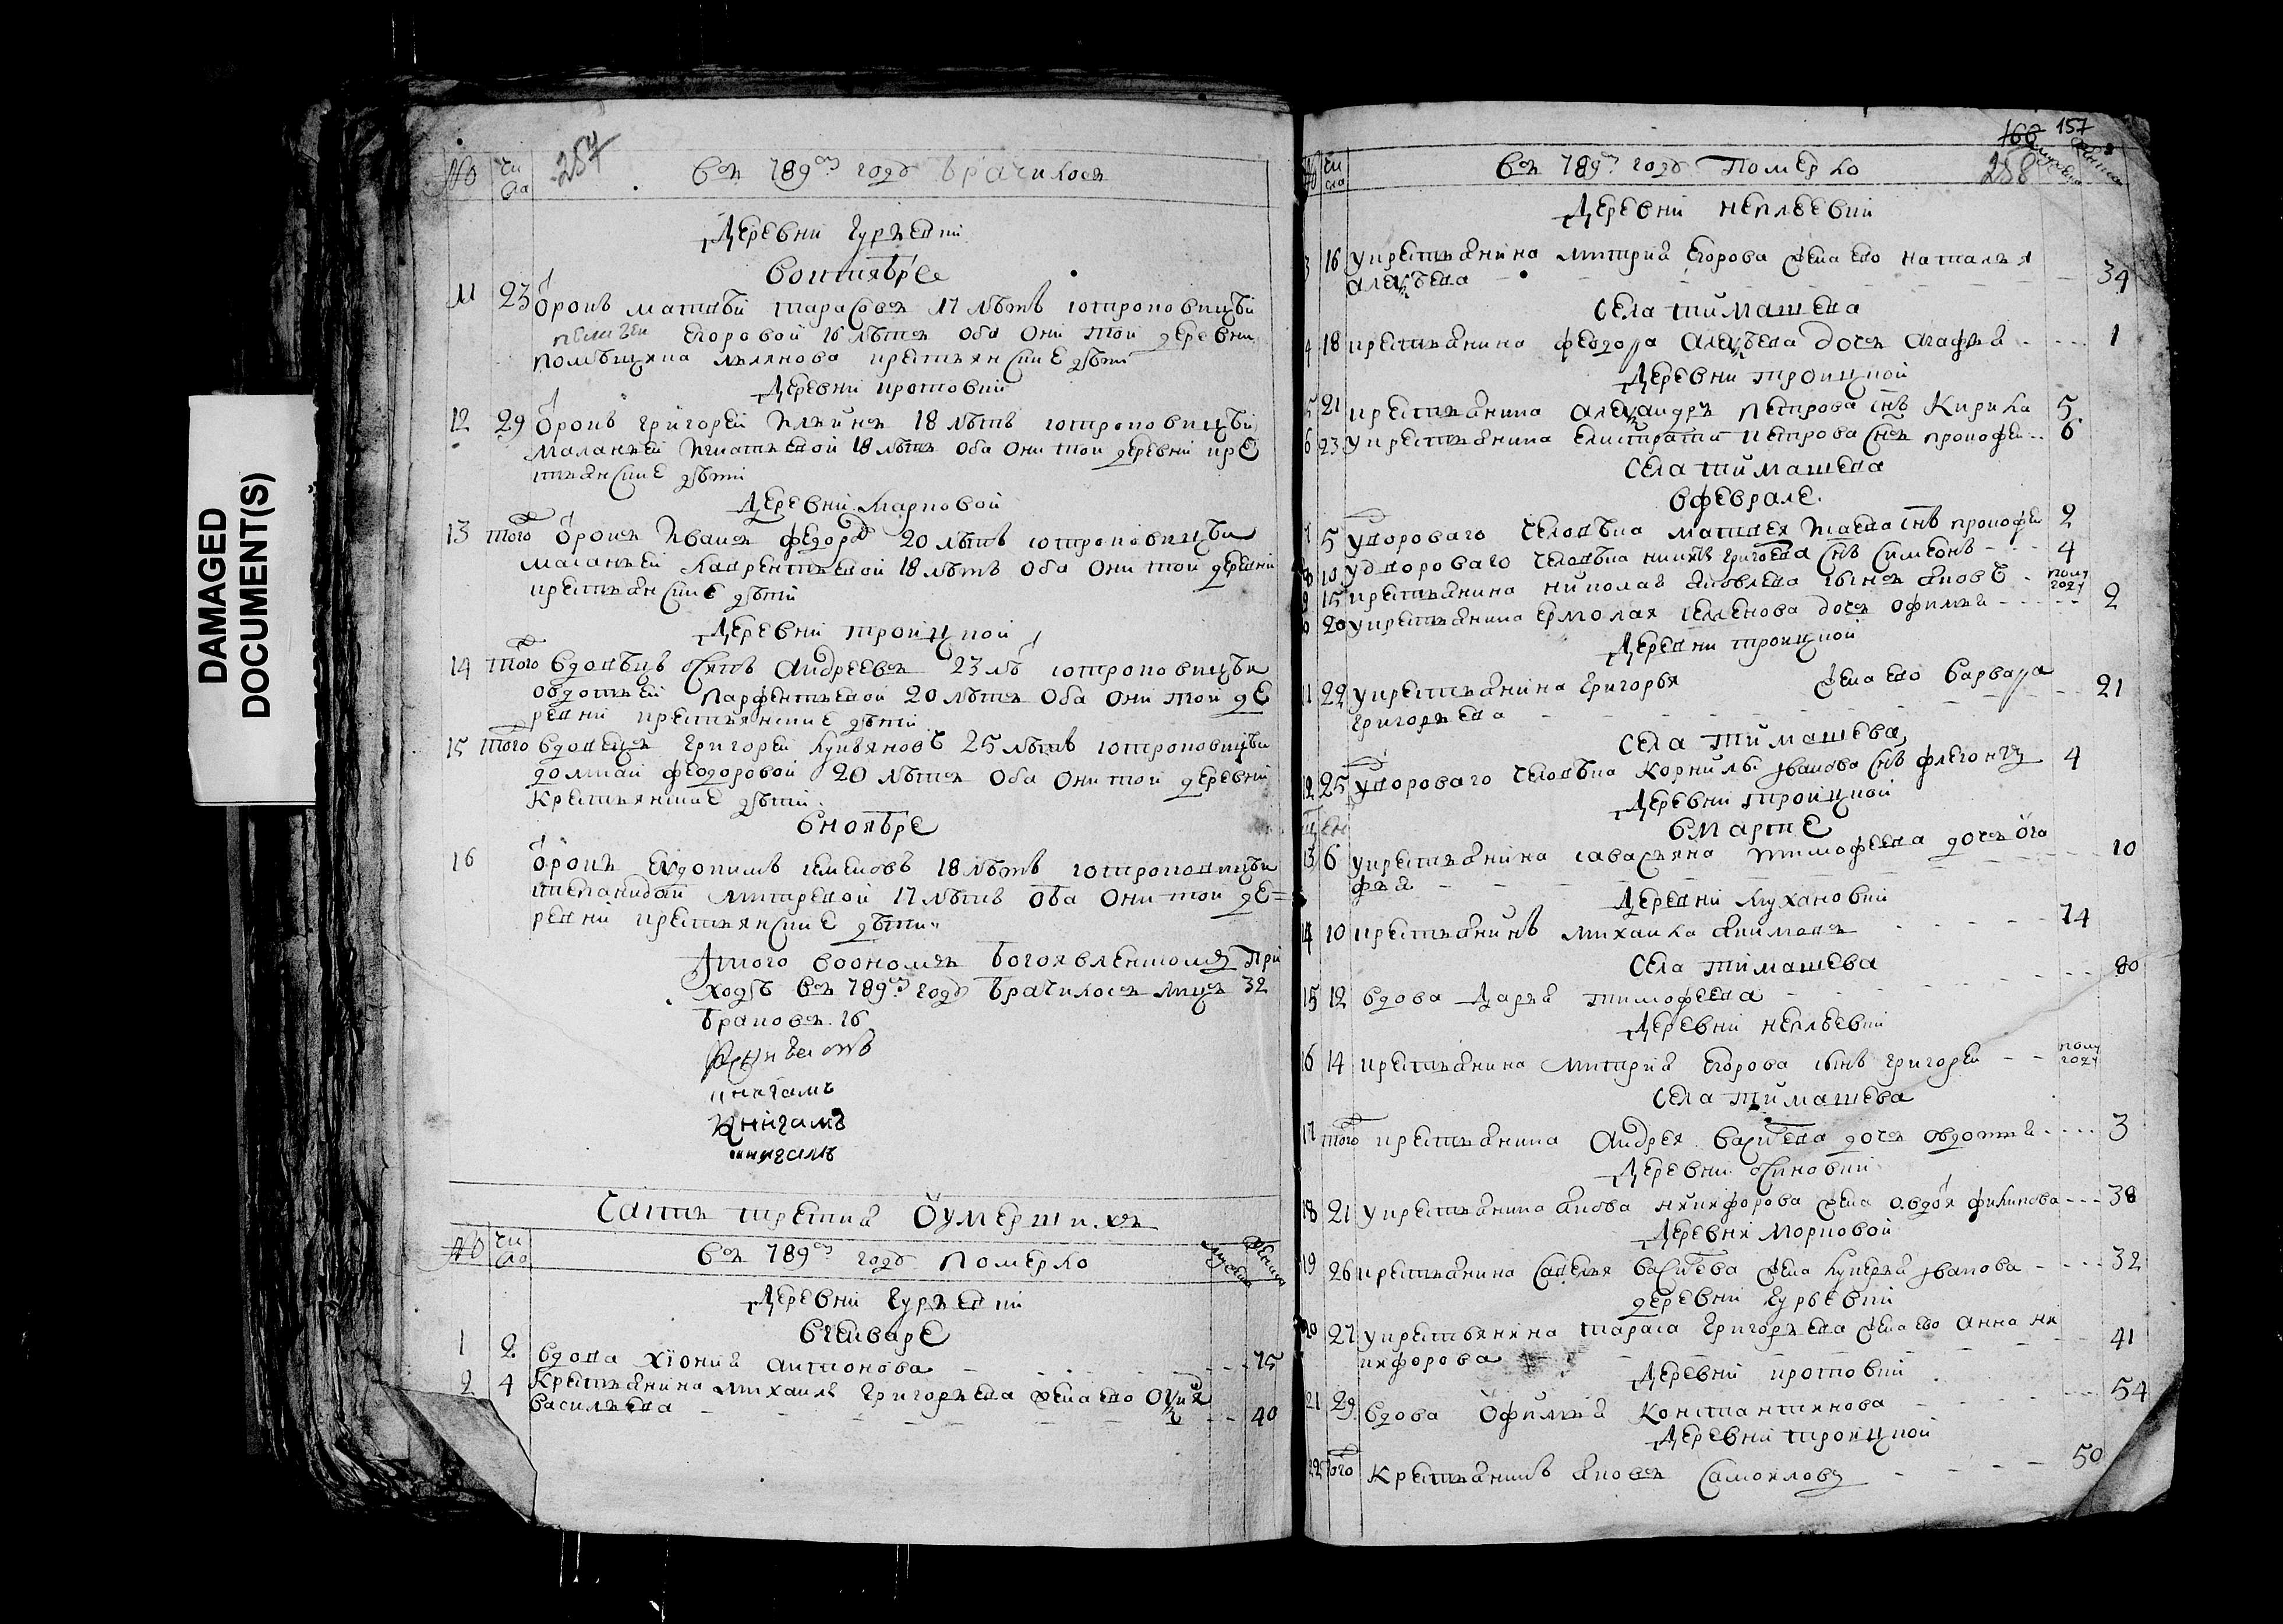 DAMAGED
DOCUMENT(S)
№ чи
сло
257
Въ 789м годѣ Брачилось
Деревни Гурьевки
Воктябре
11 23 Отрокъ Матвѣй Тарасовъ 17 лѣтъ Сотроковицѣй
Егоровой 16 лѣтъ Оба Они той деревни
помѣщика крестьянские дѣти
Деревни кротовки
12 29 Отрокъ Григорей Ильинъ 18 лѣтъ сотроковицѣй
Маланьей Игнатьевой 18 лѣтъ Оба Они той деревни кре
стьянские дѣти
Деревни Марковой
13 того Отрокъ Иванъ Федоровъ 20 лѣтъ сотроковицѣй
Маланьей Лаврентьевой 18 лѣтъ Оба Они той деревни
крестьянские дѣти
Деревни троицкой
14 того вдовецъ Осипъ Андреевъ 23 лѣ сотроковицѣй
овдотьей Парфентьевой 20 лѣтъ Оба Они той де
ревни крестьянские дѣти
15 того вдовецъ Григорей Лукьяновъ 25 лѣтъ сотроковицѣй
домной федоровой 20 лѣтъ Оба Они той деревни
Крестьянские дѣти
Вноябре
16 Отрокъ Евдокимъ семеновъ 18 лѣтъ сотроковицѣй
степанидой Митревой 17 лѣтъ Оба Они той де=
ревни крестьянские дѣти
Итого воономъ Богоявленскомъ При
ходѣ Въ 789м годѣ Брачилось лицъ 32
Браковъ 16
книгамъ
книгамъ
книгамъ
Часть третия Оумерших
№ чи
сло
Въ 789м годѣ Померло
мужеска женска
Деревни Гурьевки
Вгенваре
1 2 Вдова Хiония антонова 75
2 4 Крестьянина михаилы Григорьева жена ево
васильева 40
166 157
258
№ чи
сло
Въ 789м годѣ Померло
мужеска женска
Деревни неплюевки
3 16 укрестьянина митрия Егорова жена ево наталья
алексѣева 34
Села тимашева
4 18 крестьянина федора алексѣева дочь агафия 1
Деревни троицкой
5 21 крестьянина александры петрова снъ Кирила 5
6 23 укрестьянина елистратия петрова снъ прокофей 6
Села тимашева
Вфеврале
7 5 удворового человѣка матвея исаева снъ прокофей 2
8 10 удворового человѣка никиты григорева снъ симеонъ 4
9 15 крестьянина николая яковлева сынъ яковъ полу
году
10 20 укрестьянина ермолая семенова дочь офимия 2
Деревни троицкой
11 22 укрестьянина григорья жена ево варвара
григорьева 21
Села тимашева
12 25 удворового человѣка Корнилы iванова снъ флегонтъ 4
Деревни троицкой
Вмарте
13 6 укрестьянина савастьяна тимофеева дочь ога
фья 10
Деревни Мухановки
14 10 крестьянинъ михаила акимовъ 74
Села тимашева
15 12 вдова Дария тимофеева 80
Деревни неплюевки
16 14 крестьянина митрия Егорова сынъ григорей полу
году
Села тимашева
17 того крестьянина Андрея василева дочь овдотия 3
Деревни осиновки
18 21 укрестьянина якова никифорова жена овдотья филипова 38
Деревни Морковой
19 26 крестьянина савелья василева жена лукерья iванова 32
деревни Гурьевки
20 27 укрестьянина тараса Григорьева жена ево Анна ни
кифорова 41
Деревни кротовки
21 29 вдова Офимия Константинова 54
Деревни троицкой
22 того Крестьянинъ яковъ Самойловъ 50